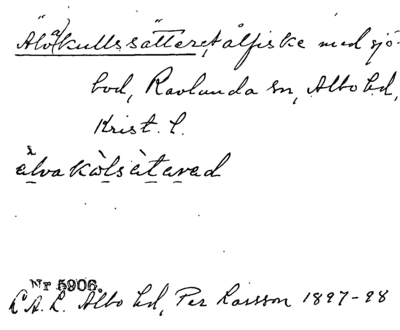 Älv(a)kullssätteret ålfiske med sjö-
bod, Ravlunda sn, Albo hd,
Krist. l.
älvakòlsètarad
Nr 5906.
L.A.L. Albo hd, Per Larsson 1897-98